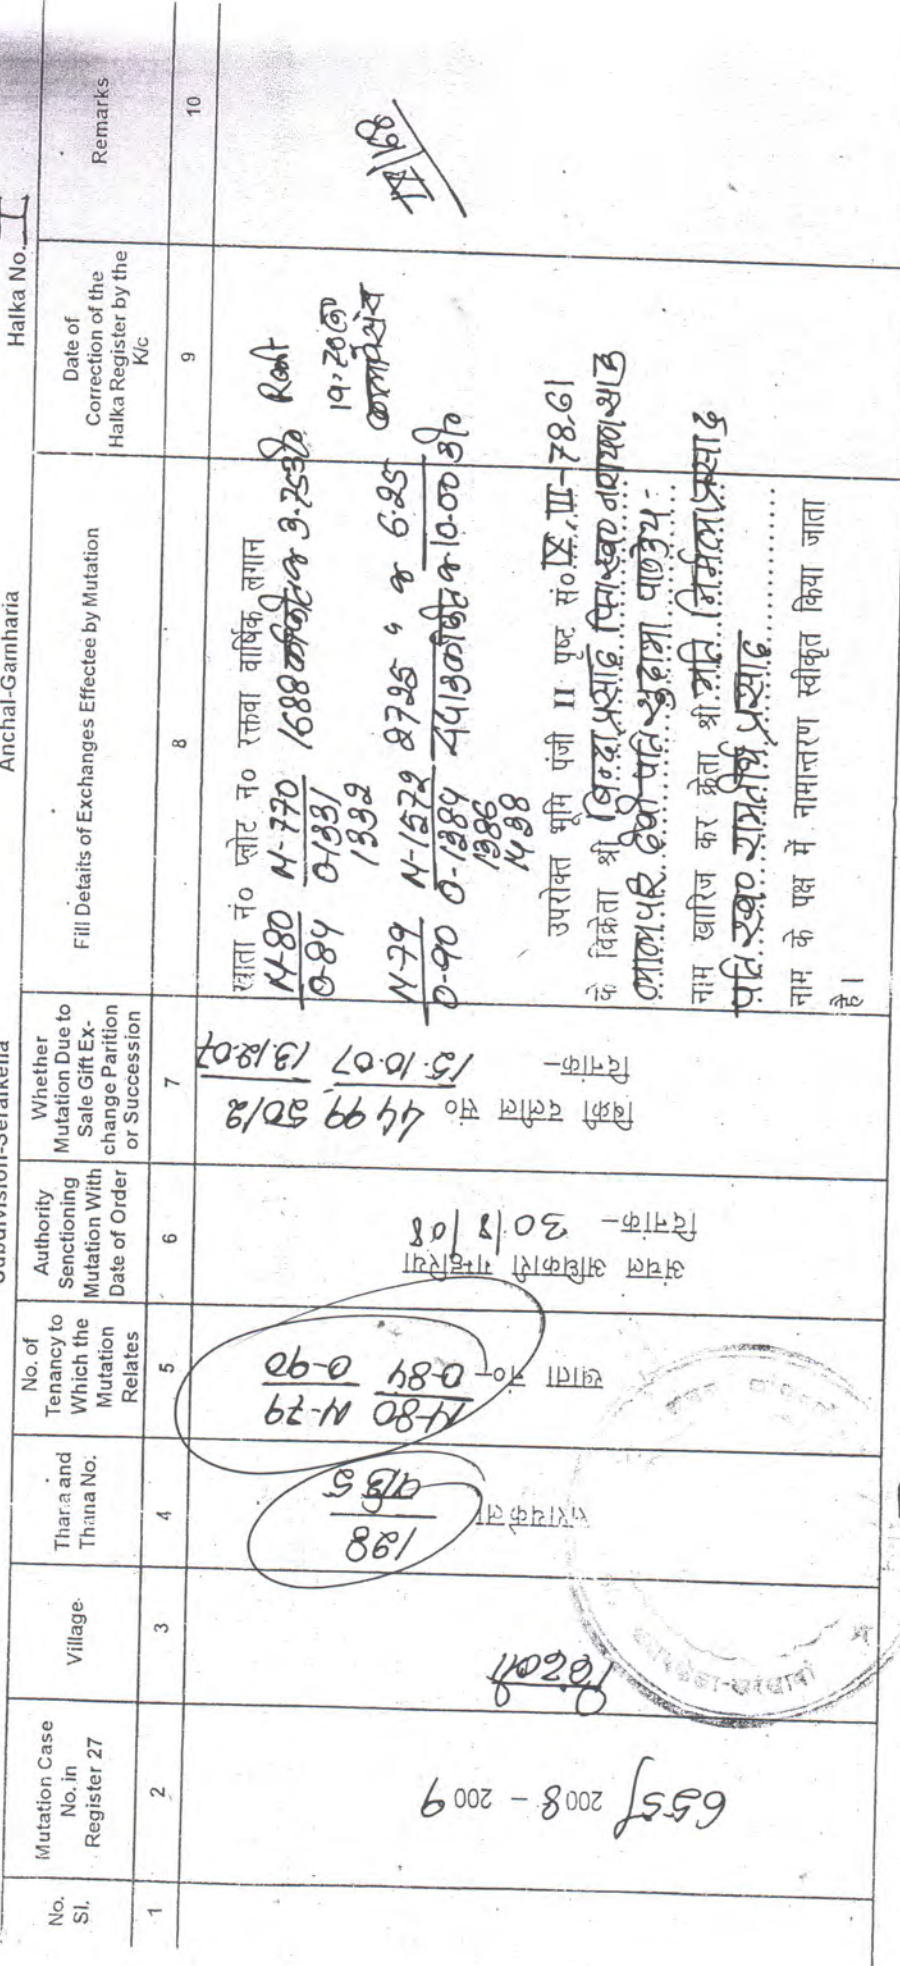 Subdivision-Seraikella
Anchal-Gamharia
Halka No. I
No. Sl.
Mutation Case No. in Register 27
Village
Thana and Thana No.
No. of Tenancy to Which the Mutation Relates
Authority Senctioning Mutation With Date of Order
Whether Mutation Due to Sale Gift Ex-change Parition or Succession
Fill Detaits of Exchanges Effectee by Mutation
Date of Correction of the Halka Register by the K/c
Remarks
1 2 3 4 5 6 7 8 9 10
655/ 2008 - 2009
सरायकेला
128
खाता नं०
N-80 N-79
0-84 0-90
अंचल अधिकारी गम्हरिया
दिनांक- 30/8/08
बिक्री दलील सं० 4499 5012
दिनांक- 15.10.07 13.12.07
खाता नं० प्लोट न० रक्तवा वार्षिक लगान
N-80 N-770 1688 3.75 Rent
0-84 0-1331
1332
19.28
N-79 N-1572 2725 " 6.25
0-90 0-1384 4413 10.00
1386
1438
उपरोक्त भूमि पंजी II पृष्ट सं० IX, III-78,61
के विक्रेता श्री बिन्दा प्रसाद
देवी पति सुदामा पाण्डेय
नाम खारिज कर क्रेता श्रीमति निर्मला प्रसाद
पति स्व० रामतीर्थ प्रसाद
नाम के पक्ष में नामान्तरण स्वीकृत किया जाता
है।
IX/68